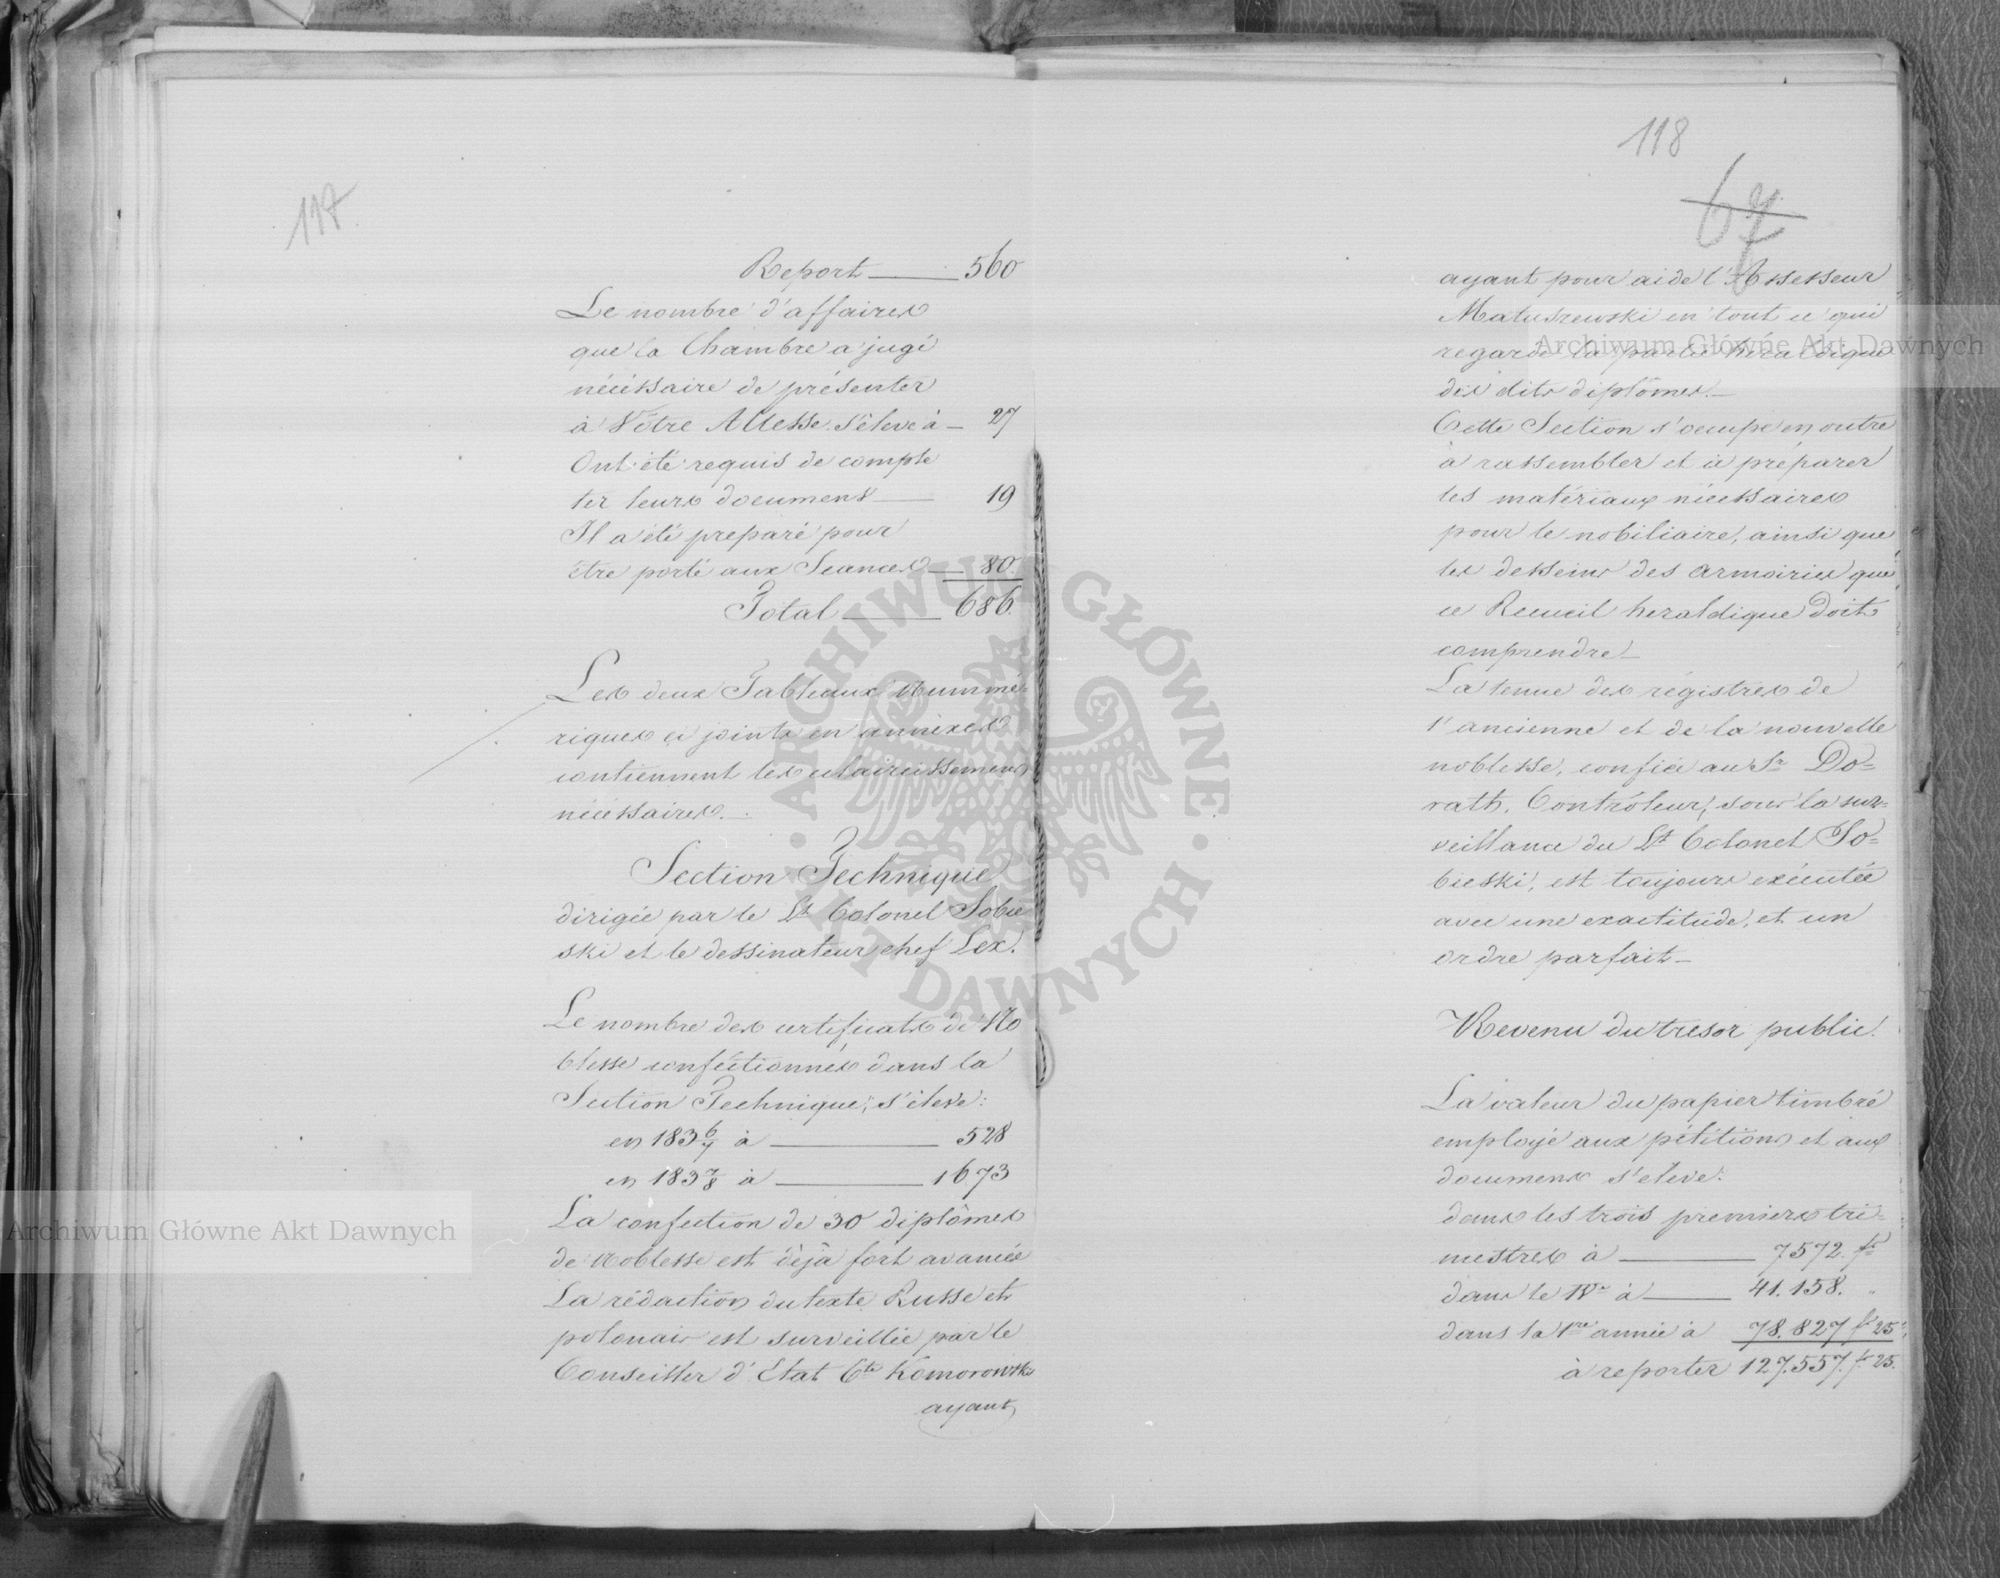 117.
Report 560
Le nombre d'affaires
que la Chambre a jugé
nécéssaire de présenter
à Vôtre Altesse s'éleve à 27
Ont été requis de comple
ter leurs documens 19
Il a été preparé pour
être porté aux Seances 80.
Total 686.
Les deux Tableaux Nummé
riques ci joints en annexes
contiennent les éclaircissemens
nécéssaires.
Section Technique
dirigée par le Lt Colonel Sobie
ski et le dessinateur chef Lex.
Le nombre des certificats de No
blesse conféctionnés dans la
Section Technique, s'éleve:
en 1836/7 à 528
en 1837/8 à 1673
La confection de 30 diplômes
de Noblesse est déjà fort avancée
La rédaction du texte Russe et
polonais est surveillée par le
Conseiller d'Etat Cte Komorowski
ayant
118
67
ayant pour aide l'Assesseur
Matuszewski en tout ce qui
regarde la partie héraldique
des dits diplômes.
Cette Section s'occupe en outre
à rassembler et à préparer
les matériaux nécessaires
pour le nobiliaire, ainsi que
les desseins des armoiries que
ce Recueil heraldique doit
comprendre.
La tenue des régistres de
l'ancienne et de la nouvelle
noblesse, confiée au Sr Do=
rath, Contrôleur, sous la sur=
veillance du Lt Colonel So=
bieski, est toujours exécutée
avec une exactitude, et un
ordre parfait
Revenu du tresor public.
La valeur du papier timbré
employé aux pétitions et aux
documens s'éleve:
dans les trois premiers tri=
mestres à 7572. fl
dans le IVe à 41.158. "
dans la 1re année à 78.827 fl 25
à reporter 127.557. fl 25.
Archiwum Główne Akt Dawnych
Archiwum Główne Akt Dawnych
ARCHIWUM GŁÓWNE AKT DAWNYCH